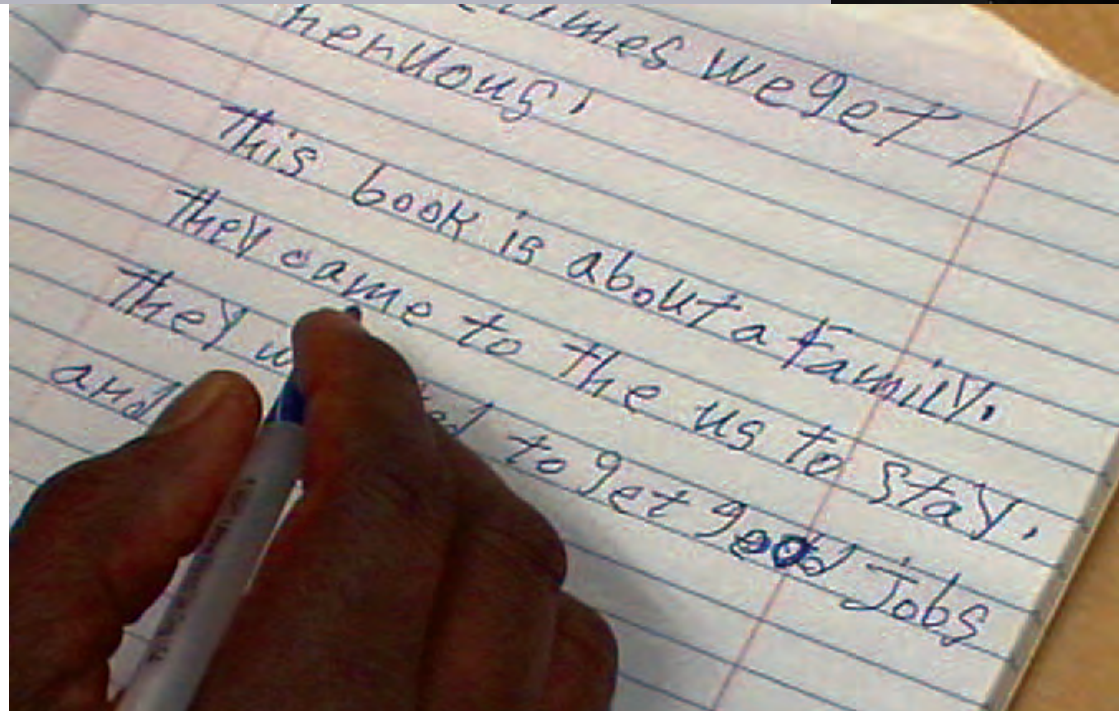 we get
nervous.
This book is about a family.
they came to the us to stay.
They to get good jobs
and